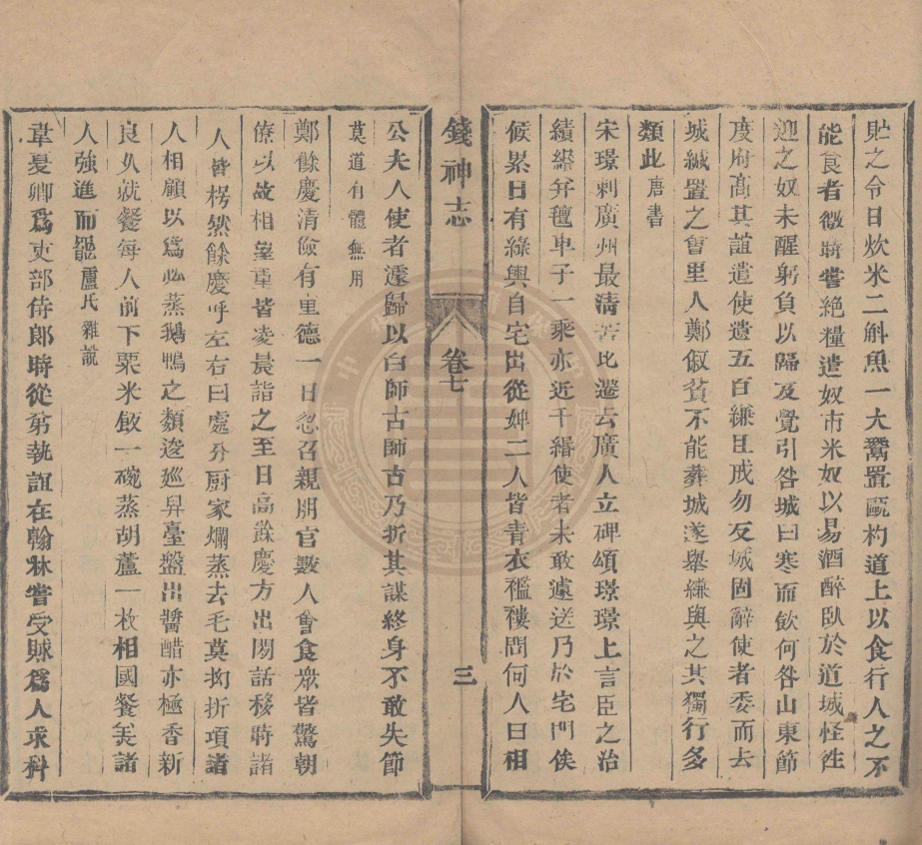 貯之令日炊米二斛魚一大鬵置甌杓道上以食行人之不
能食者微時嘗絶糧遣奴市米奴以易酒醉臥於道城怪徃
迎之奴未醒躬負以歸及覺引咎城曰寒而飲何咎山東節
度府高其誼遣使遺五百縑且戒勿反城固辭使者委而去
城緘置之會里人鄭俶貧不能葬城遂舉縑與之其獨行多
類此唐書
宋璟刺廣州最清苦比遷去廣人立碑頌璟璟上言臣之治
績纔弁氊車子一乘亦近千緡使者未敢遽送乃於宅門俟
候累日有緣輿自宅出從婢二人皆青衣襤褸問何人曰相
錢神志
卷七
三
公夫人使者還歸以白師古師古乃折其謀終身不敢失節
莫道有體無用
鄭餘慶清儉有重德一日忽召親朋官數人會食衆皆驚朝
僚以故相望重皆凌晨詣之至日高餘慶方出閒話移時諸
人皆枵然餘慶呼左右曰處分厨家爛蒸去毛莫拗折項諸
人相顧以爲必蒸鵝鴨之類逡廵舁臺盤出醬醋亦極香新
良久就餐每人前下粟米飯一碗蒸胡蘆一枚相國餐美諸
人強進而罷盧氏雜說
韋夏卿爲吏部侍郎時從弟執誼在翰林嘗受賕爲人求科